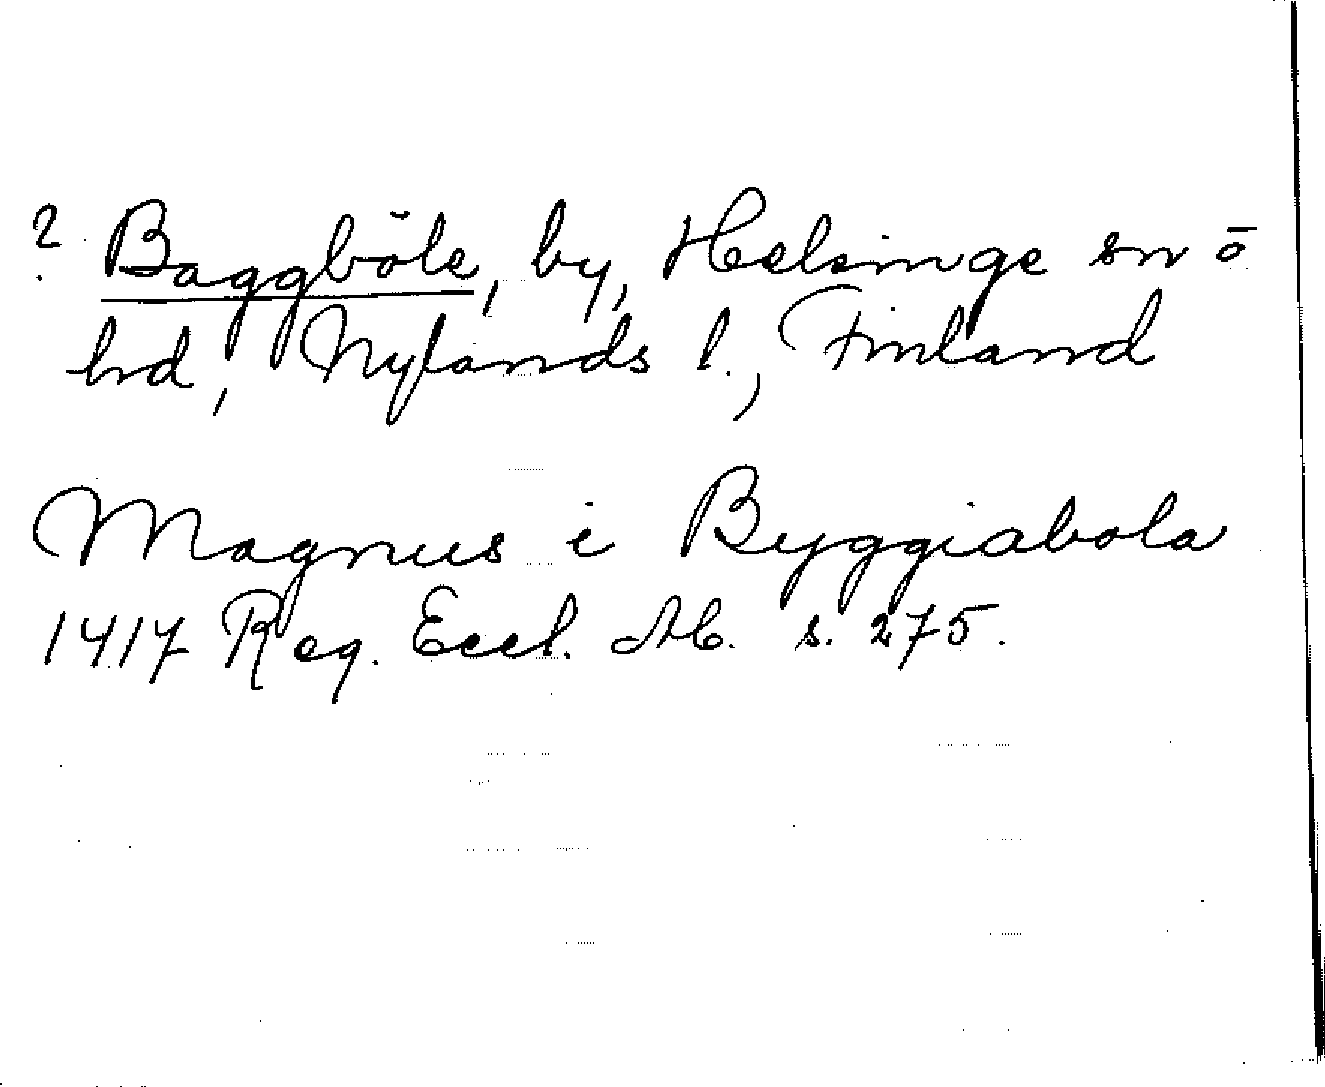 ? Baggböle, by, Helsinge sn ö
hd, Nylands l., Finland
Magnus i Byggiabola
1417 Reg. Eccl. Ab. s. 275.